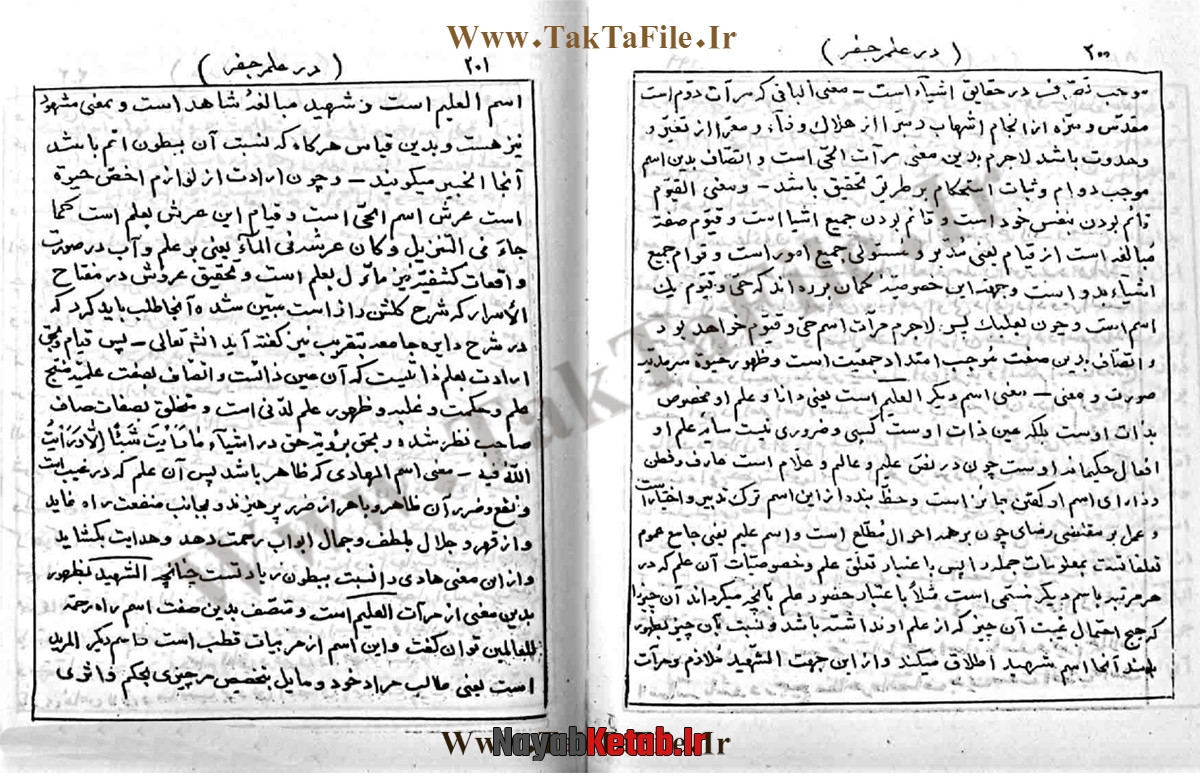 Www.TakTaFile.Ir
۲۰۰
( در علم جفر )
موجب تصرف در حقایق اشیآء است - معنی الباقی که مرآت دوم است
مقدس و منزه از انجام اشهاب و مبرا از هلاک و فنآء و معرا از تغیر و
وحدوت باشد لاجرم بدین معنی مرآت الحی است و اتصاف بدین اسم
موجب دوام و ثبات استحکام بر طریق تحقیق باشد - و معنی القیوم
قائم بودن بنفس خود است و قائم بودن جمیع اشیا است و قیوم صفة
مبالغه است از قیام یعنی مدبر و مستولی جمیع امور است و قوام جمع
اشیآء بدو است و جهت این خصوصیة گمان برده اند که حی و قیوم یک
اسم است و چون بعلبک پس لاجرم مرآت اسم حی و قیوم خواهد بود
و اتصاف بدین صفت موجب امتداد جمعیت است و ظهور حیوة سرمدیه
صورت و معنی - معنی اسم دیگر العلیم است یعنی دانا و علم او مخصوص
بذات اوست بلکه عین ذات اوست کسبی و ضروری نیست سایر علم او
افعال حکیمانه اوست چون در نفس علیم و عالم و علام است عارف و فطن
و دارای اسم او گفتن جایز است و حظ بنده از این اسم ترک تدبیر و اختیار است
و عمل بر مقتضی رضای چون بر همه احوال مطلع است و اسم علیم یعنی جامع عموم
تعلقاتست بمعلومات جمله را پس با عتبار تعلق علم و خصوصیات آن علم که در
هر مرتبه باسم دیگر مسمی است مثلاً با عتبار حضور علم بآنچه میگرداند آن چیز را
که هیچ احتمال غیبت آن چیز که از علم او نداشته باشد و نسبت بآن چیز بظهور
آنجا اسم شهید اطلاق میکند و از این جهت الشهید ملازم و مرآت
۲۰۱
( در علم جفر )
اسم العلیم است و شهید مبالغهٔ شاهد است و بمعنی مشهود
نیز هست و بدین قیاس هرگاه که نسبت آن ببطون اتم باشد
آنجا الخبیر میگویند - و چون ارادت از لوازم اخص حیوة
است عرش اسم الحی است و قیام این عرش بعلم است کما
جآء فی التنزیل و کان عرشه فی المآء یعنی بر علم و آب در صورت
واقعات کشفیه نیز مأول بعلم است و تحقیق عروش در مفتاح
الأسرار که شرح گلشن راز است مبین شده آنجا طلب باید کرد که
در شرح دایره جامعه بتقریب نیز گفته آید انشه تعالی - پس قیام
ارادت بعلم ذاتیست که آن عین ذاتست و اتصاف بصفت علمیه منتج
علم و حکمت و غلبه و ظهور علم لدنی است و متعلق بصفات صاف
صاحب نظر شده و برویت حق در اشیآء ما رأیت شیئاً الا و رأیت
الله فیه - معنی اسم الهادی که ظاهر باشد پس آن علم که در غیب است
و نفع و ضرر آن ظاهر و با هر از ضرر پرهیزند و بجانب منفعت راه نماید
و از قهر و جلال بلطف و جمال ابواب رحمت دهد و هدایت بگشاید
و از این معنی هادی را نسبت ببطون زیادتست چنانچه الشهید بظهور
بدین معنی از مرآت العلیم است و متصف بدین صفت اسم راه رحمة
للعالمین توان گفت و این اسم از مربیات قطب است و اسم دیگر المرید
است یعنی طالب مراد خود و مایل بتخصیص هر چیزی بحکم
Www.TakTaFile.Ir
NayabKetab.Ir
Www.TakTaFile.Ir